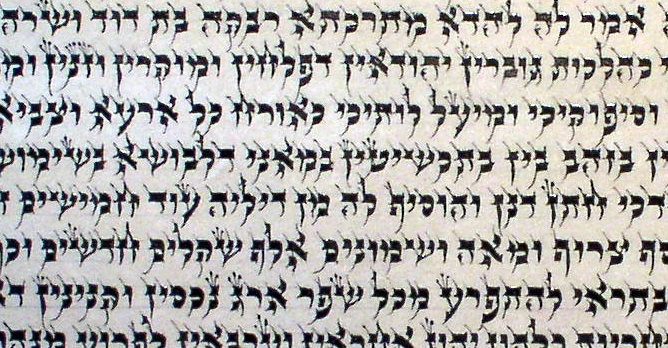 אמר לה להדא מתרכתא רבקה בת דוד ושרה
כהלכות גוברין יהודאין דפלחין ומוקרין וזנין
וסיפוקיכי ומיעל לותיכי כאורח כל ארעא וצביא
בזהב בין בתכשיטין במאני דלבושא בשימוש
חתן דנן והוסיף לה מן דיליה עוד חמישים
צרוף ומאה ושמונים אלף שקלים חדשים וכך
בתראי להתפרע מכל שפר ארג נכסין וקנינין